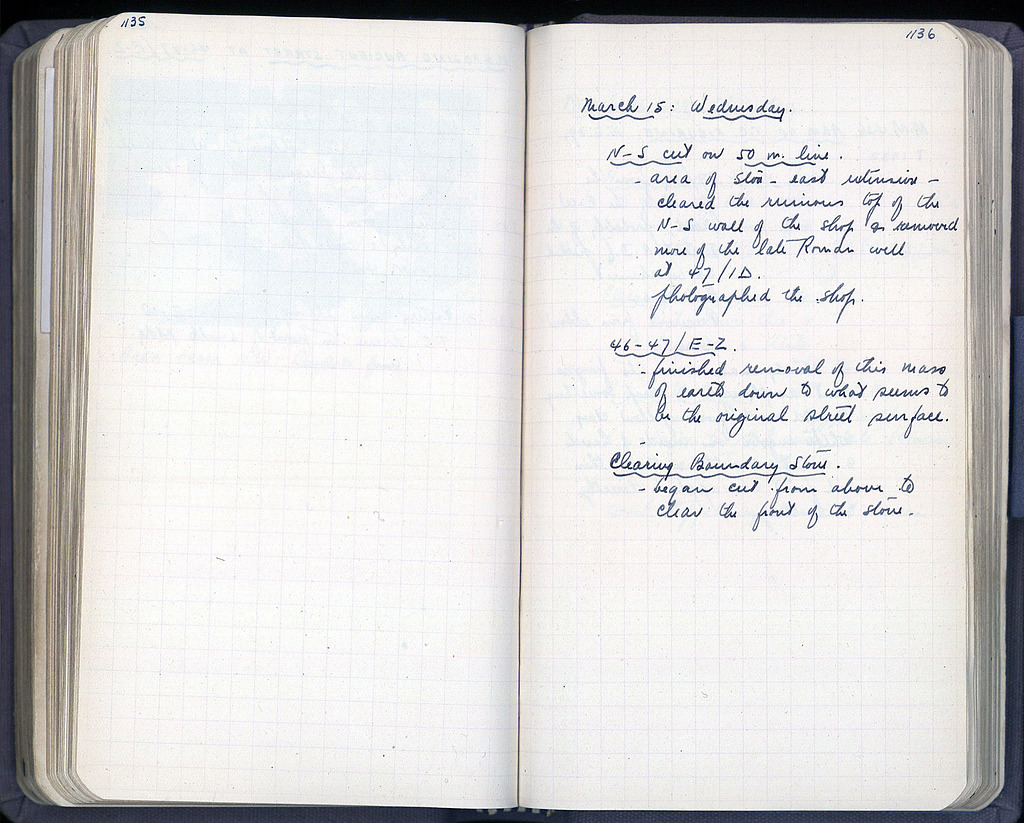 1135
1136
March 15: Wednesday.
N-S cut on 50 m. line.
- area of Stoa - east extension -
cleared the ruinous top of the
N-S wall of the shop & removed
more of the late Roman wall
at 47/ID.
photographed the shop.
46-47/E-Z.
- finished removal of this mass
of earth down to what seems to
be the original street surface.
Clearing Boundary Stone.
- began cut from above to
clear the front of the stone.